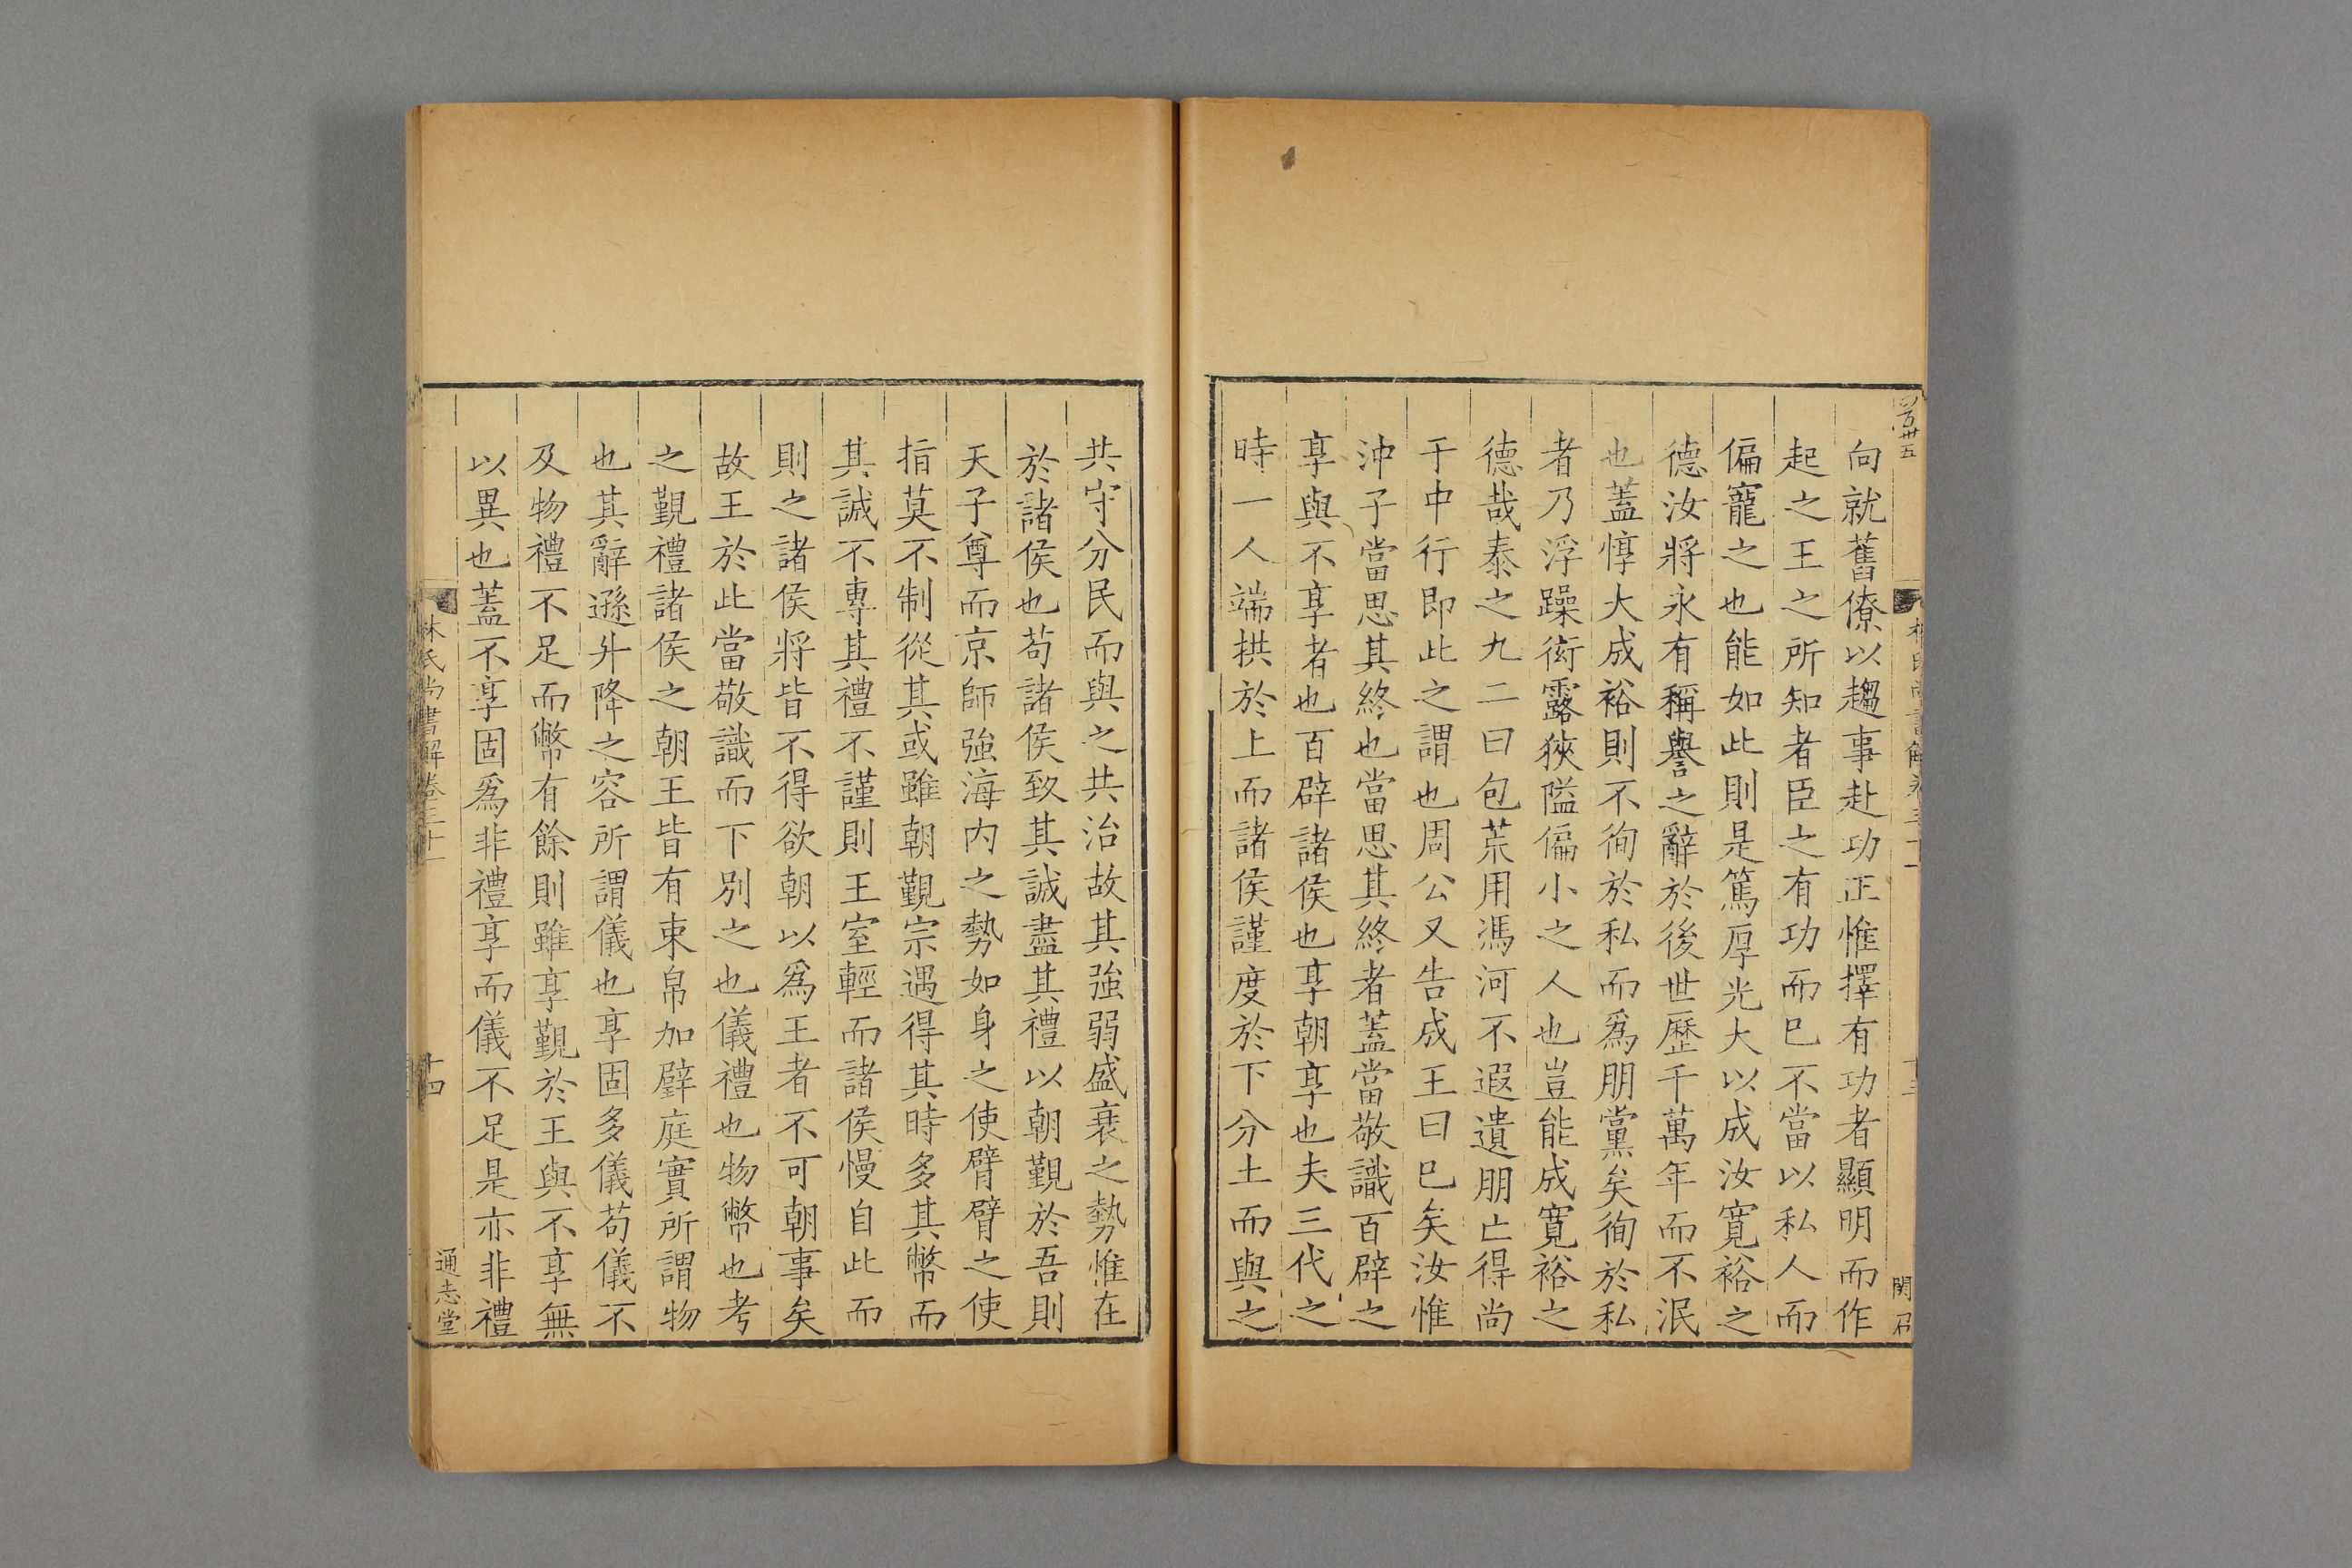 向就舊僚以趨事赴功正惟擇有功者顯明而作
起之王之所知者臣之有功而巳不當以私人而
偏寵之也能如此則是篤厚光大以成汝寬裕之
德汝將永有稱譽之辭於後世歷千萬年而不泯
也蓋惇大成裕則不徇於私而爲朋黨矣徇於私
者乃浮躁衒露狹隘偏小之人也豈能成寬裕之
德哉泰之九二曰包荒用馮河不遐遺朋亡得尚
于中行即此之謂也周公又告成王曰巳矣汝惟
沖子當思其終也當思其終者蓋當敬識百辟之
享與不享者也百辟諸侯也享朝享也夫三代之
時一人端拱於上而諸侯謹度於下分土而與之
共守分民而與之共治故其強弱盛衰之勢惟在
於諸侯也苟諸侯致其誠盡其禮以朝覲於吾則
天子尊而京師強海内之勢如身之使臂臂之使
指莫不制從其或雖朝覲宗遇得其時多其幣而
其誠不專其禮不謹則王室輕而諸侯慢自此而
則之諸侯將皆不得欲朝以爲王者不可朝事矣
故王於此當敬識而下別之也儀禮也物幣也考
之覲禮諸侯之朝王皆有束帛加璧庭實所謂物
也其辭遜升降之容所謂儀也享固多儀苟儀不
及物禮不足而幣有餘則雖享覲於王與不享無
以異也蓋不享固爲非禮享而儀不足是亦非禮
林氏尚書解卷三十一
十四
通志堂